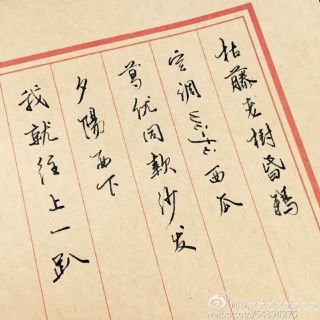 枯藤老树昏鸦
空调wifi西瓜
葛优同款沙发
夕陽西下
我就往上一趴
weibo.com/54894275